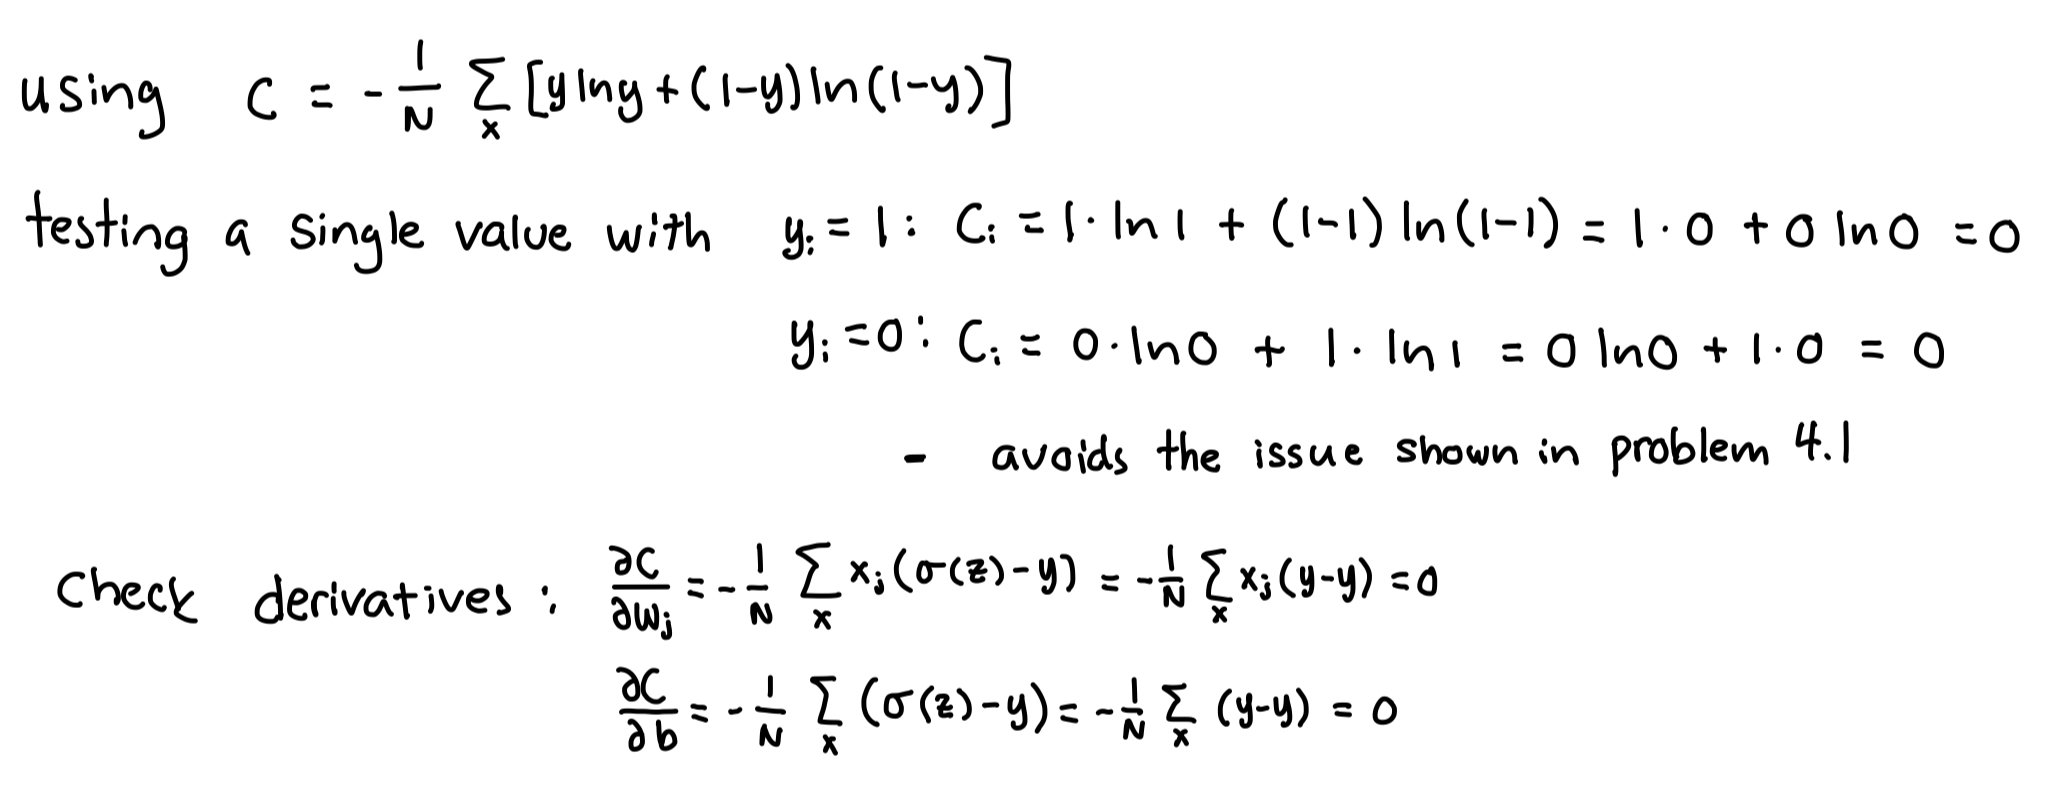 using C = -1/N Σ_x [y ln y + (1-y) ln(1-y)]
testing a single value with y_i = 1 : C_i = 1·ln 1 + (1-1) ln(1-1) = 1·0 + 0 ln 0 = 0
y_i = 0 : C_i = 0·ln 0 + 1·ln 1 = 0 ln 0 + 1·0 = 0
- avoids the issue shown in problem 4.1
Check derivatives : ∂C/∂w_j = -1/N Σ_x x_j (σ(z)-y) = -1/N Σ_x x_j (y-y) = 0
∂C/∂b = -1/N Σ_x (σ(z)-y) = -1/N Σ_x (y-y) = 0